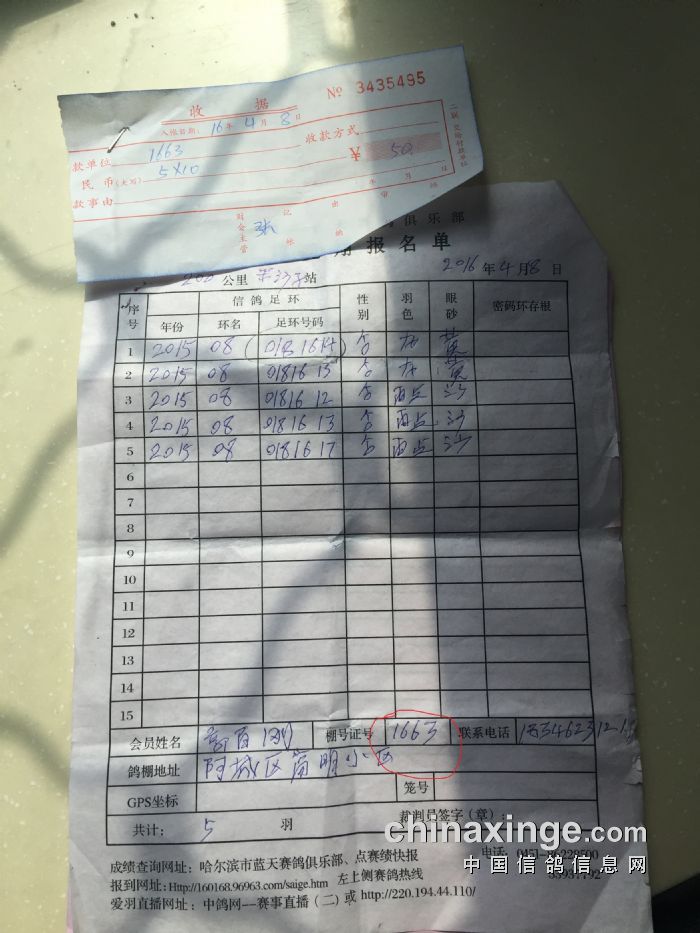 № 3435495
收 据
入账日期: 16年 4月 8日
款单位 1663 收款方式
民币(大写) 5×10 ¥ 50
款事由 年 月 日
二联 交给付款单位
财会主管 张 记账 出纳 审核
俱乐部
报名单
200公里 站 2016年4月8日
序号 信鸽足环 性别 羽色 眼砂 密码环存根
年份 环名 足环号码
1 2015 08 (0181614) 黄
2 2015 08 0181615 黄
3 2015 08 0181612 雨点 沙
4 2015 08 0181613 雨点 沙
5 2015 08 0181617 雨点 沙
6
7
8
9
10
11
12
13
14
15
会员姓名 棚号证号 1663 联系电话
鸽棚地址 阿城区 明小区
GPS坐标 笼号
共计: 5 羽 裁判员签字(章):
成绩查询网址: 哈尔滨市蓝天赛鸽俱乐部、点赛绩快报 电话: 0451-86228500
报到网址: Http://160168.96963.com/saige.htm 左上侧赛鸽热线
爱羽直播网址: 中鸽网--赛事直播(二)或http://220.194.44.110/
chinaxinge.com
中国信鸽信息网